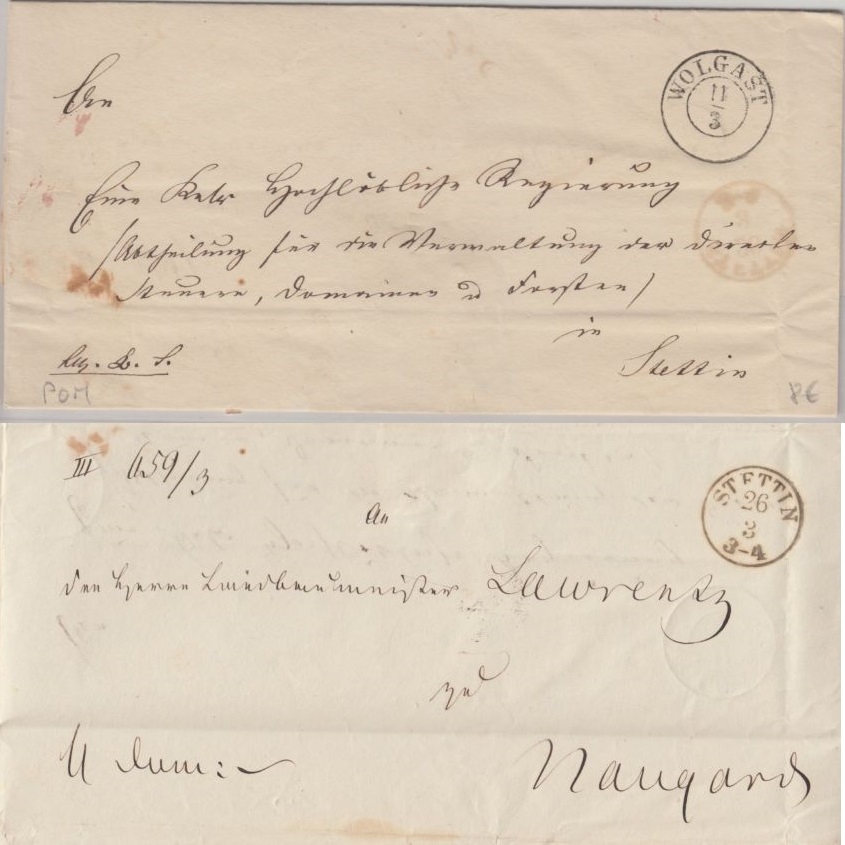 WOLGAST
11
3
An
Eine Hochlöbliche Regierung
/Abtheilung für die Verwaltung der direkten
Steuern, Domainen u Forsten/
in
Stettin
POM
8€
III 659/3
STETTIN
26
3
3-4
An
den Herrn Landbaumeister Lawrentz
zu
Naugard